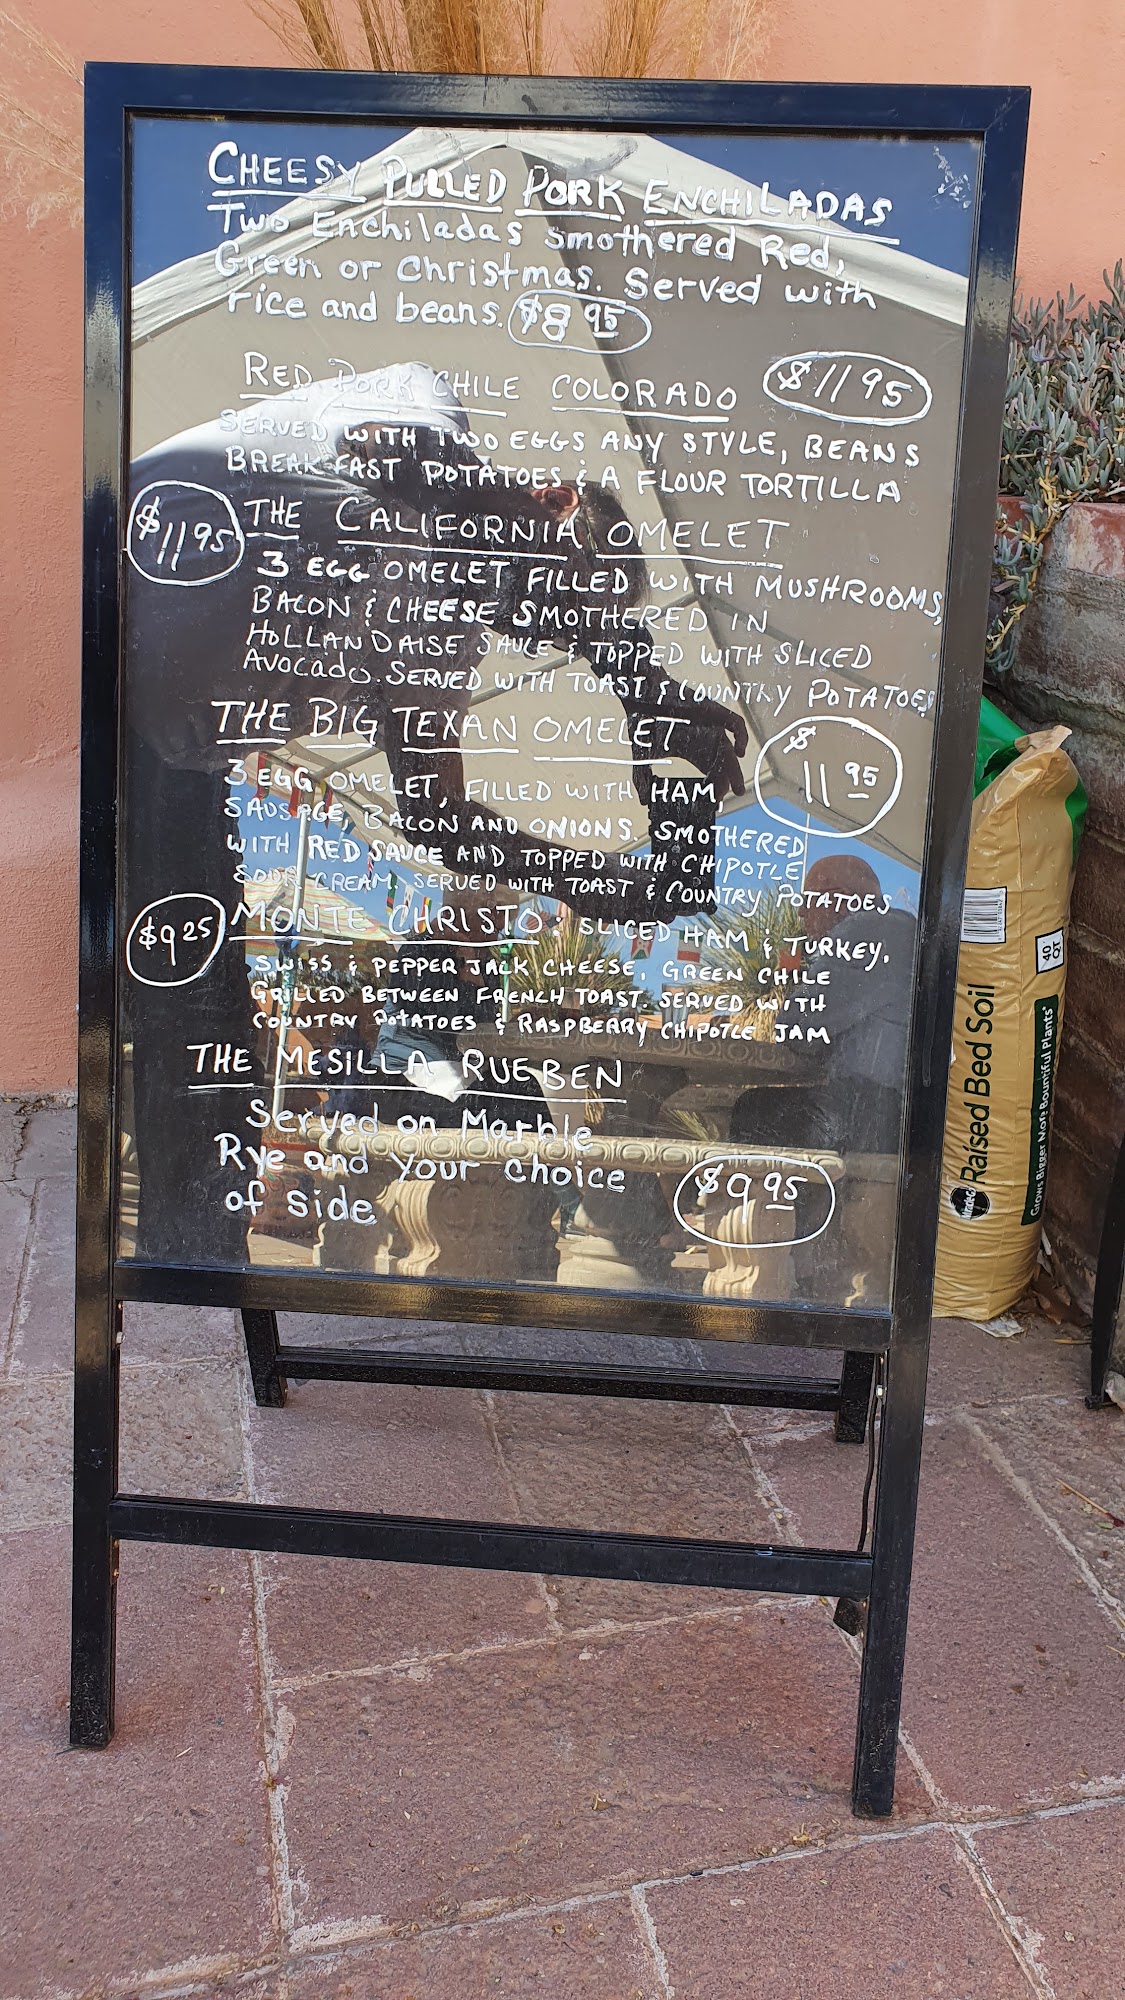 CHEESY PULLED PORK ENCHILADAS
Two Enchiladas smothered Red,
Green or Christmas. Served with
rice and beans. $8 95
RED PORK CHILE COLORADO $11 95
SERVED WITH TWO EGGS ANY STYLE, BEANS
BREAKFAST POTATOES & A FLOUR TORTILLA
$11 95 THE CALIFORNIA OMELET
3 EGG OMELET FILLED WITH MUSHROOMS,
BACON & CHEESE SMOTHERED IN
HOLLANDAISE SAUCE & TOPPED WITH SLICED
AVOCADO. SERVED WITH TOAST & COUNTRY POTATOES
THE BIG TEXAN OMELET $11 95
3 EGG OMELET, FILLED WITH HAM,
SAUSAGE, BACON AND ONIONS. SMOTHERED
WITH RED SAUCE AND TOPPED WITH CHIPOTLE
SOUR CREAM. SERVED WITH TOAST & COUNTRY POTATOES
$9 25 MONTE CHRISTO: SLICED HAM & TURKEY,
SWISS & PEPPER JACK CHEESE, GREEN CHILE
GRILLED BETWEEN FRENCH TOAST. SERVED WITH
COUNTRY POTATOES & RASPBERRY CHIPOTLE JAM
THE MESILLA RUEBEN
Served on Marble
Rye and your choice
of side $9 95
40 QT
Raised Bed Soil
Grows Bigger More Bountiful Plants*